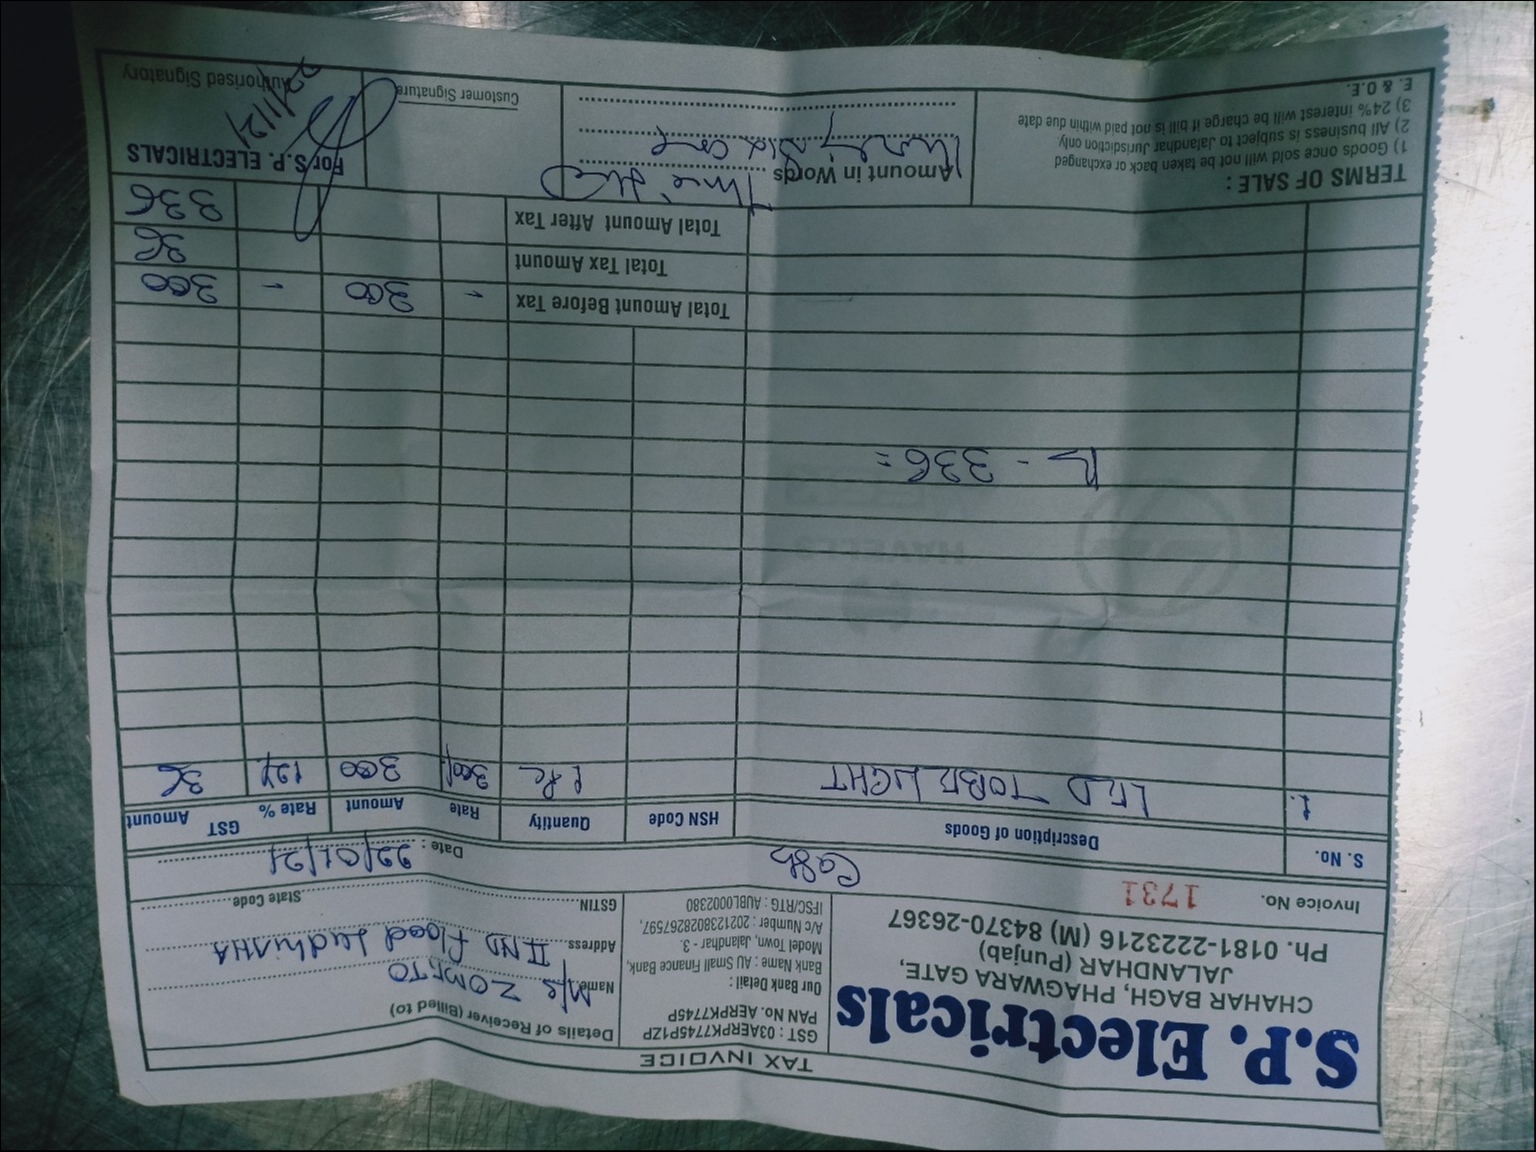 TAX INVOICE
S.P. Electricals
CHAHAR BAGH, PHAGWARA GATE,
JALANDHAR (Punjab)
Ph. 0181-2223216 (M) 84370-26367
GST : 03AERPK7745P1ZP
PAN No. AERPK7745P
Our Bank Detail :
Bank Name : AU Small Finance Bank,
Model Town, Jalandhar - 3.
A/c Number : 2021238028267597,
IFSC/RTG : AUBL0002380
Details of Receiver (Billed to)
Name M/s ZOMETO
Address IIND flood Ludhiana
GSTIN State Code
Invoice No. 1731 Cash Date : 22/01/21
S. No. Description of Goods HSN Code Quantity Rate Amount GST Rate % Amount
1. LED TOBE LIGHT 1 Pc 300/- 300 12% 36
Rs - 336=
Total Amount Before Tax - 300 - 300
Total Tax Amount 36
Total Amount After Tax 336
TERMS OF SALE :
1) Goods once sold will not be taken back or exchanged
2) All business is subject to Jalandhar Jurisdiction only
3) 24% interest will be charge if bill is not paid within due date
E. & O.E.
Amount in Words Three
Customer Signature
For S.P. ELECTRICALS
22/1/21
Authorised Signatory